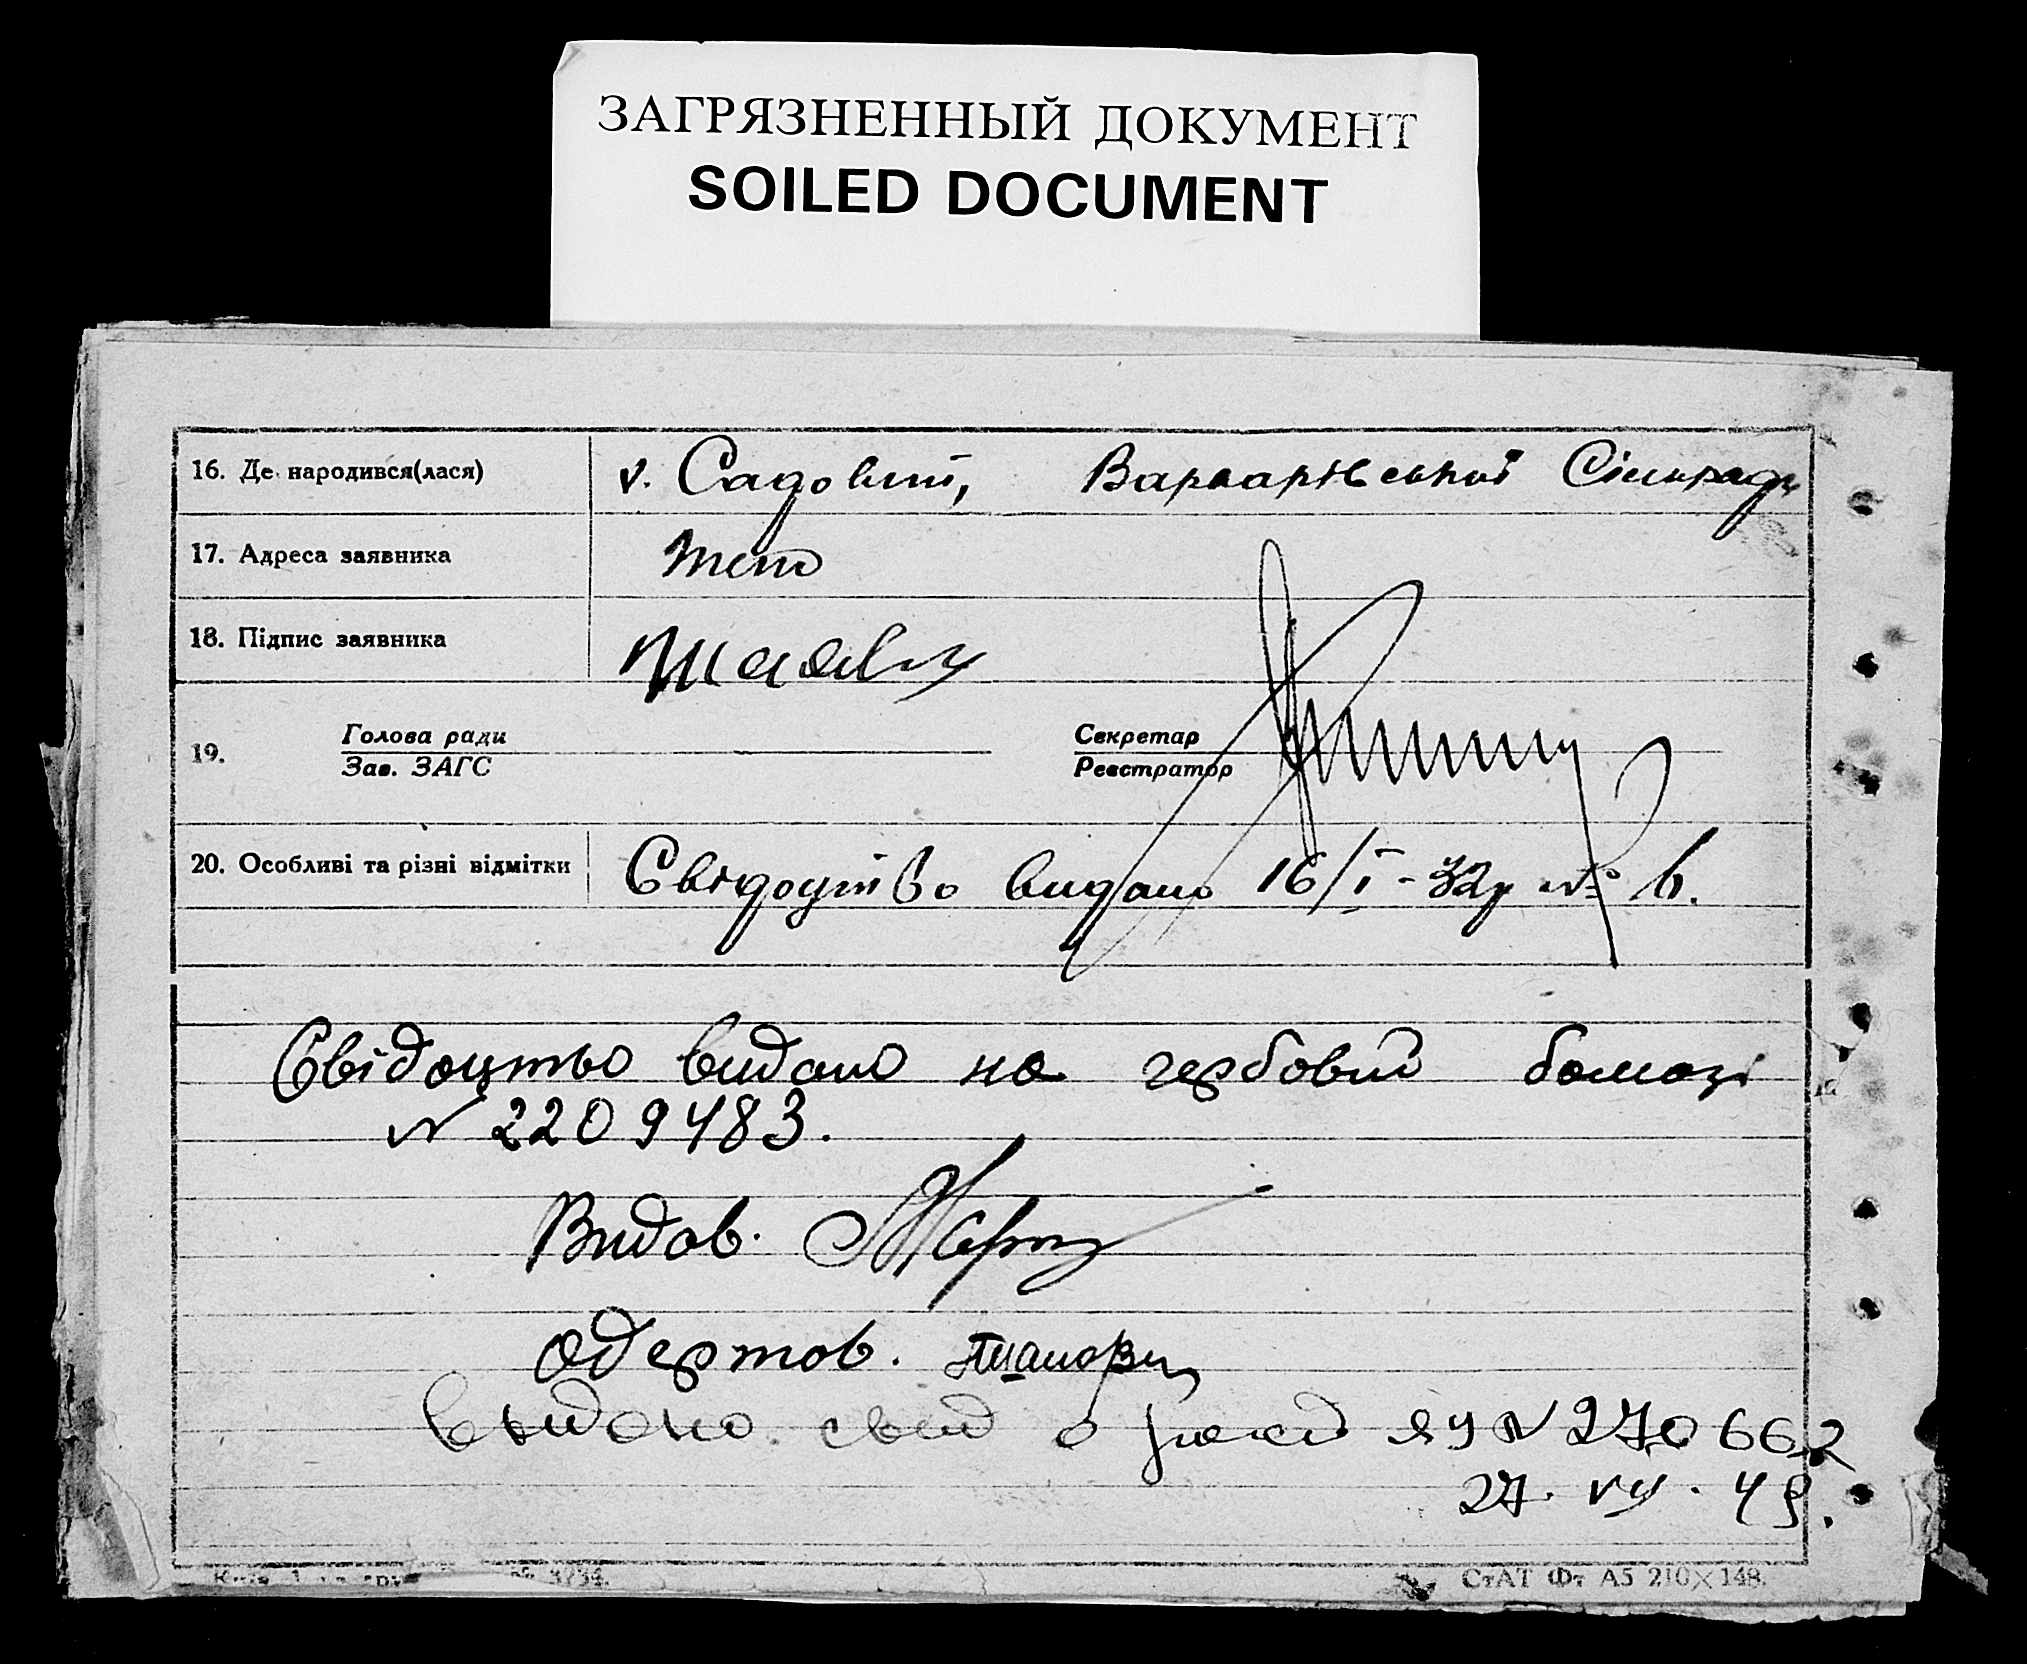 ЗАГРЯЗНЕННЫЙ ДОКУМЕНТ
SOILED DOCUMENT
16. Де народився(лася) Варварівської Сільради
17. Адреса заявника
18. Підпис заявника
19. Голова ради Секретар
Зав. ЗАГС Реєстратор
20. Особливі та різні відмітки Свідоцтво видано 16/І-32р №
Свідоцтво видано на гербовій бомазі
N 2209483.
Видав.
Одержав.
Выдано свид о рожд ЯУ N 270662
27. VII. 49.
3754. СтАТ Фт А5 210×148.